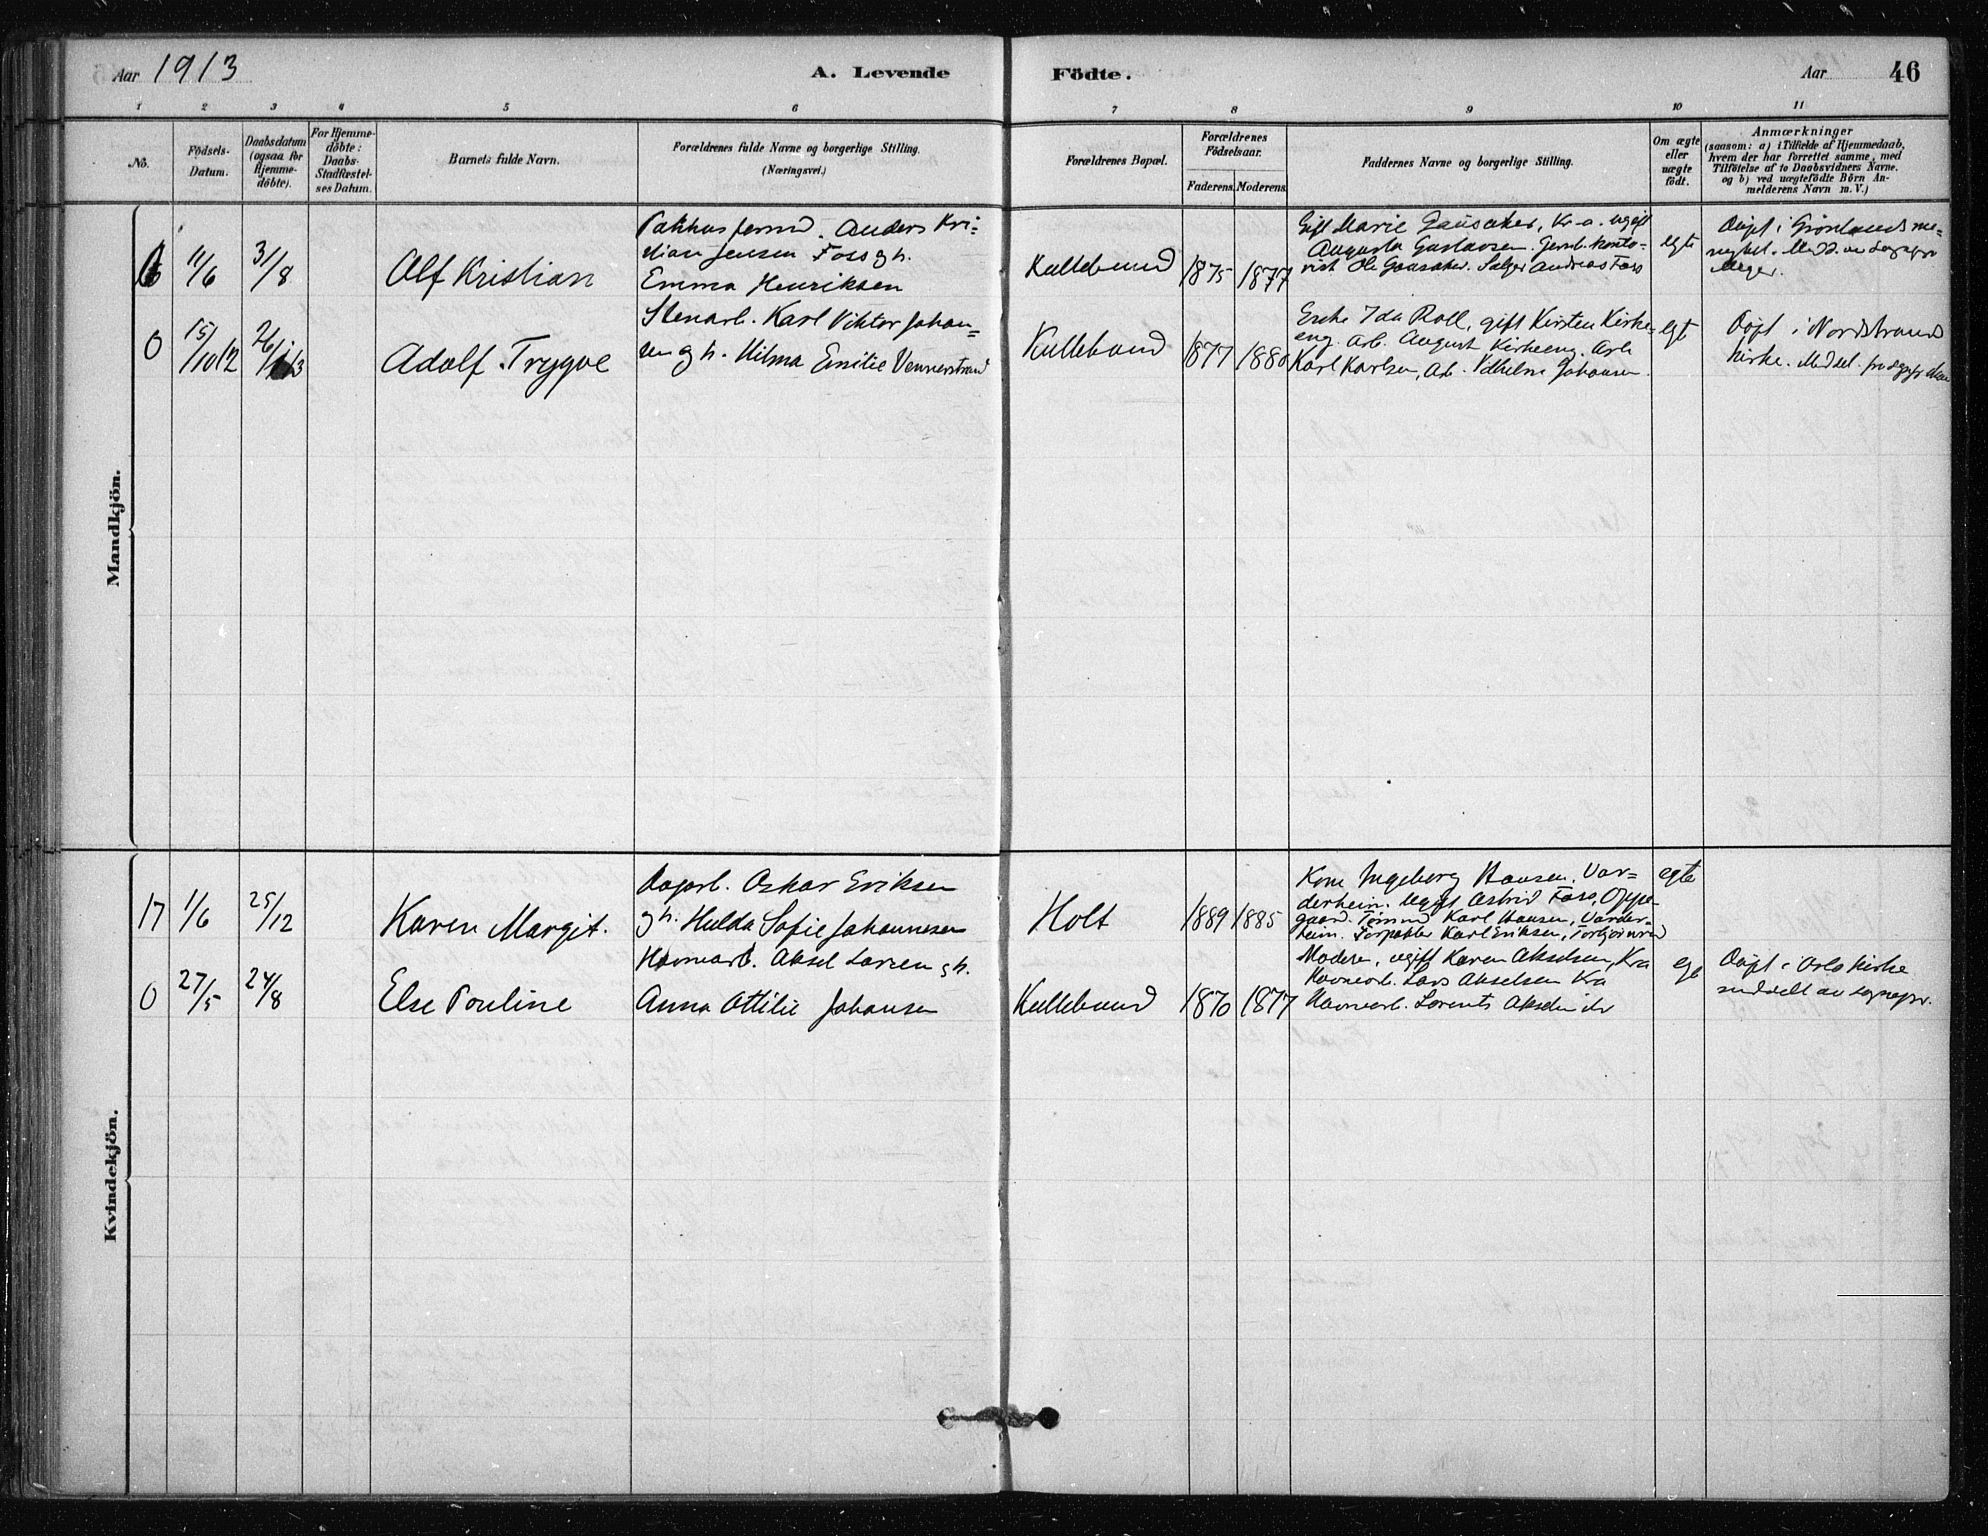 Aar 1913
A. Levende Födte.
Aar 46
1 2 3 4 5 6 7 8 9 10 11
No.
Födsels-
Datum.
Daabsdatum
(ogsaa for
Hjemme-
döbte).
For Hjemme-
döbte:
Daabs-
Stadfæstel-
ses Datum.
Barnets fulde Navn.
Forældrenes fulde Navne og borgerlige Stilling.
(Næringsvei.)
Forældrenes Bopæl.
Forældrenes
Födselsaar.
Faderens. Moderens.
Faddernes Navne og borgerlige Stilling.
Om ægte
eller
uægte
födt.
Anmærkninger
(saasom: a) i Tilfælde af Hjemmedaab,
hvem der har forrettet samme, med
Tilföielse af to Daabsvidners Navne.
og b) ved uægtefödte Börn An-
melderens Navn m. V.)
Mandkjön.
11/6 31/8
Alf Kristian
Pakhusformd. Anders Kri-
stian Jensen Foss g h.
Emma Henriksen
Kullebund
1875 1877
Gift Marie Gaasaker, Kr-a. ugift
Augusta Gustavsen. Jernb. konto-
rist Ole Gaasaker. Sælger Andreas Foss
egte
Døpt i Grønlands me-
nighet. Medd. av sognepr
0 15/10 12 26/1 13
Adolf Trygve
Stenarb. Karl Viktor Johan-
sen g h. Hilma Emilie Vennerstrand
Kullebund
1877 1880
Enke Ida Roll, gift Kirsten Kirke-
eng. Arb. August Kirkeeng. Arb
Karl Karlsen, Arb. Vilhelm Johansen.
egt
Døpt i Nordstrand
Kirke. Meddel.
Kvindekjön.
17 1/6 25/12
Karen Margit.
Dagarb. Oskar Eriksen
g h. Hulda Sofie Johannesen
Holt
1889 1885
Kone Ingeborg Hansen, Var-
derheim. Ugift Astrid Foss, Oppe-
gaard. Tømmd Karl Hansen, Varder-
heim. Forpakter Karl Eriksen, Torbjørnrud
egte
0 27/5 24/8
Else Pouline
Havnearb. Aksel Larsen g h.
Anna Ottilie Johansen
Kullebund
1870 1877
Moderen, ugift Karen Akselsen, Kra
Havnearb. Lars Akselsen Kra
Havnearb. Lorents Akselsen
egt
Døpt i Oslo kirke
meddelt av sognepr.